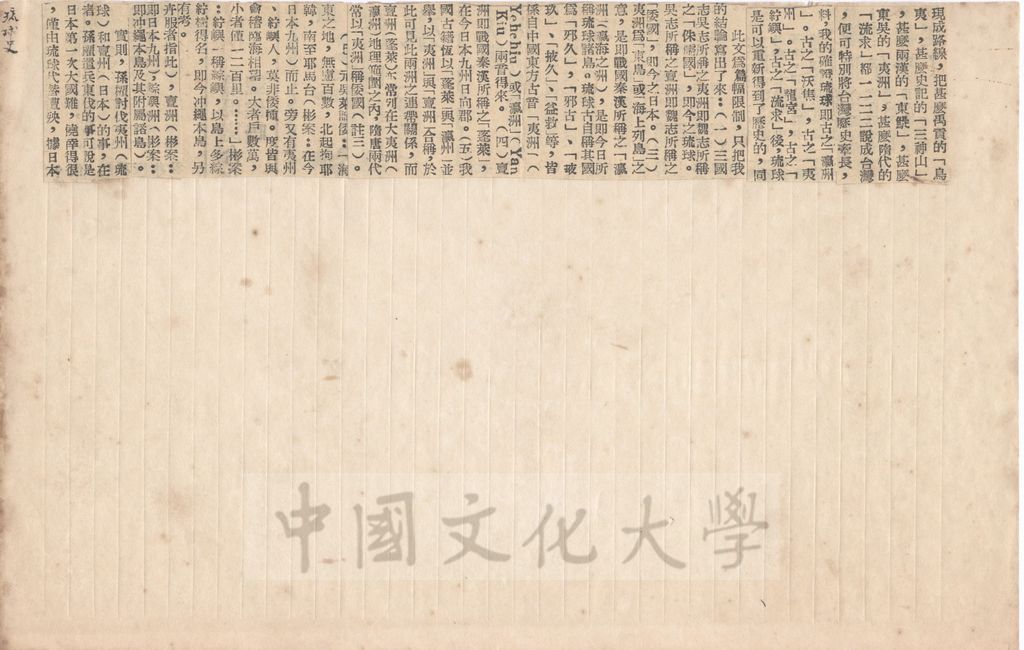 現成路線，把甚麼禹貢的「島
夷」，甚麼史記的「三神山」
，甚麼兩漢的「東鯷」，甚麼
東吳的「夷洲」，甚麼隋代的
「流求」都一一說成台灣
，便可特別將台灣歷史牽長，
料，我的確證琉球即古之「瀛洲
」。古之「沃焦」，古之「夷
州」。古之「龍宮」，古之「
紵嶼」，古之「流求」後，琉球
是可以重新得到了歷史的，同
此文為篇幅限制，只把我
的結論寫出了來：（一）三國
志吳志所稱之夷洲即魏志所稱
之「侏儒國」，即今之琉球。
吳志所稱之亶洲即魏志所稱之
「倭國」，即今之日本。（三）
夷洲為「東島」或「海上列島」之
意，是即戰國秦漢所稱之「瀛
洲（瀛海之洲），是即今日所
稱琉球諸島。琉球古自稱其國
為「邪久」，「邪古」、「玻
玖」、「掖久」、「益救」等，皆
係自中國東方古音「夷洲」（
Yehchiu）或「瀛洲」（Yan
Kiu）兩音得來。（四）亶
洲即戰國秦漢所稱之「蓬萊」，
在今日本九州日向郡。（五）我
國古籍恆以「蓬萊」與「瀛州」並
舉，以「夷洲」與「亶洲」合稱，於
此可見此兩洲之連帶關係，而
亶洲（蓬萊）亦常列在大夷洲（
瀛洲）地理範圍之內，隋唐兩代
常以「夷洲」稱倭國（註三）。
東之地，無慮百數，北起拘耶
韓，南至耶馬台（彬案：在今
日本九州）而止。旁又有夷州
、紵嶼人，莫非倭種。度皆與
會稽臨海相望。大者戶數萬，
小者僅一二百里。……」彬案
紵嶼得名，即今冲繩本島，另
有考。
卉服者指此），亶洲（彬案：
即冲繩本島及其附屬諸島）。
實則，孫權討伐夷州（琉
球）和亶州（日本）的事，在
者。孫權遣兵東伐的事可說是
日本第一次大國難，僥倖得很
，僅由琉球代替遭殃，據日本
琉球史
中國文化大學